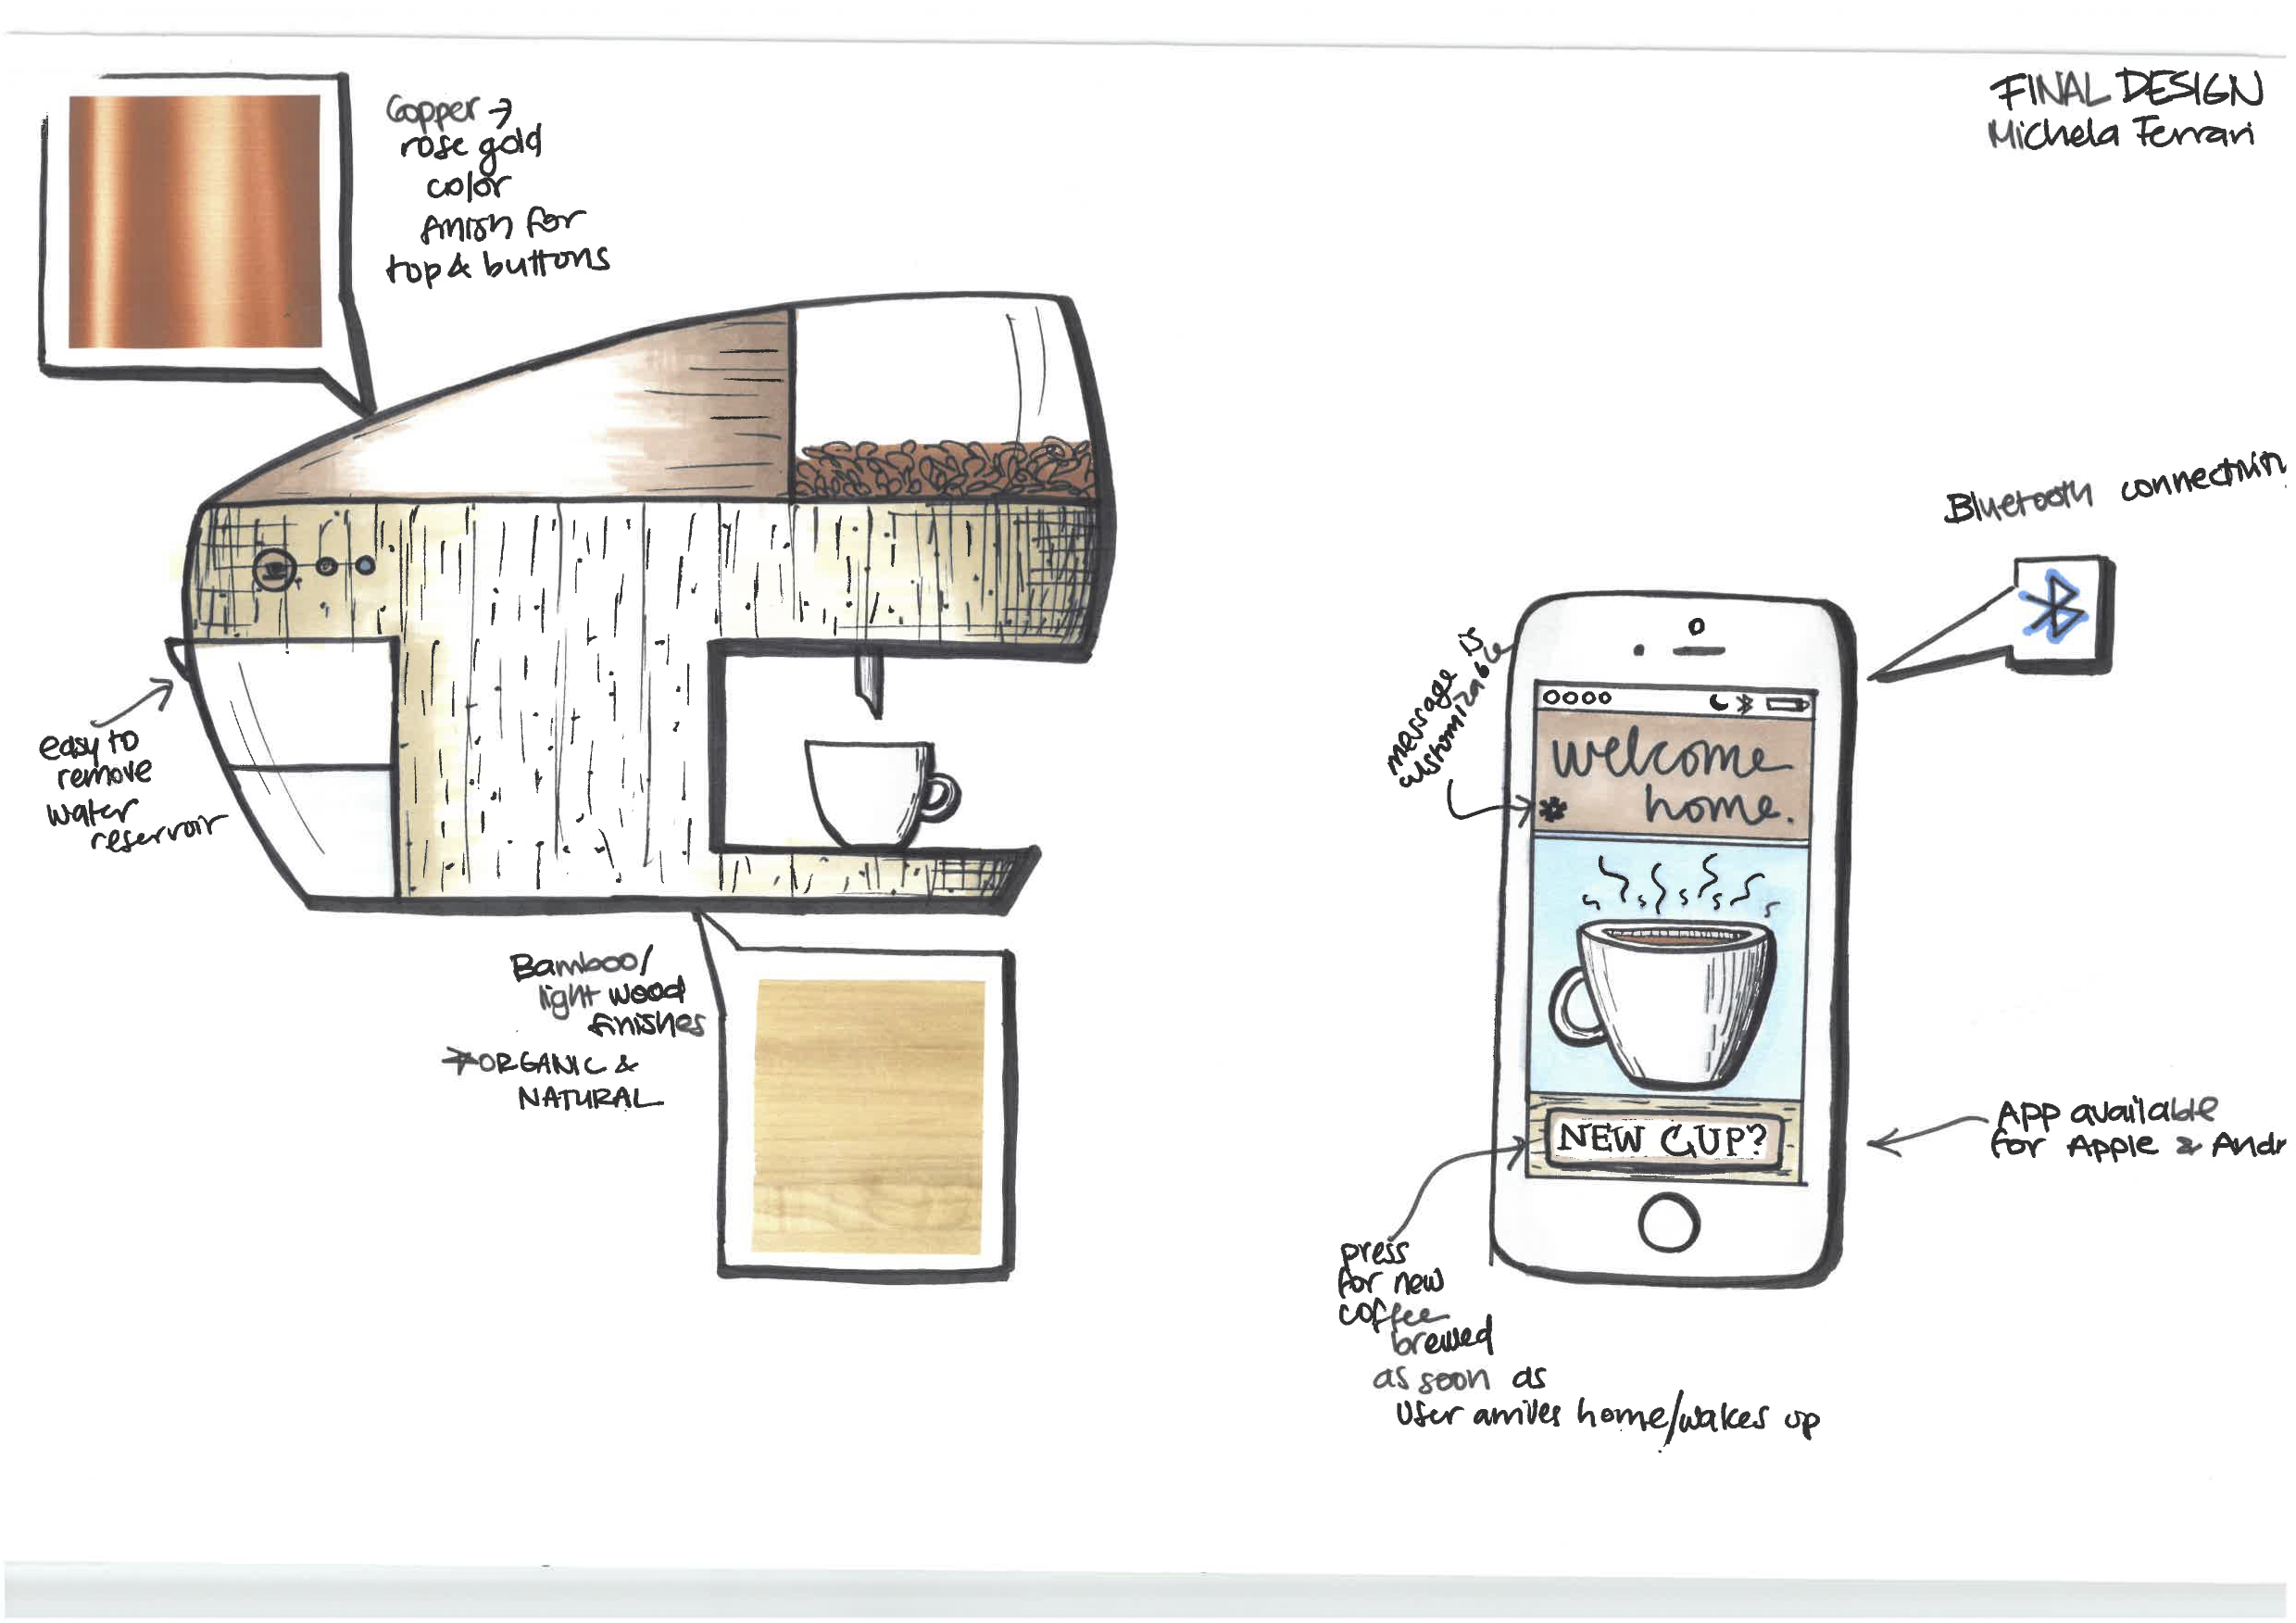 FINAL DESIGN
Michela Ferrari
Copper →
rose gold
color
finish for
top & buttons
easy to
remove
water
reservoir
Bamboo/
light wood
finishes
→ ORGANIC &
NATURAL
Bluetooth connectivity
message is
customizable
welcome
home.
NEW CUP?
App available
for Apple & Andr
press
for new
coffee
brewed
as soon as
User arrives home/wakes up